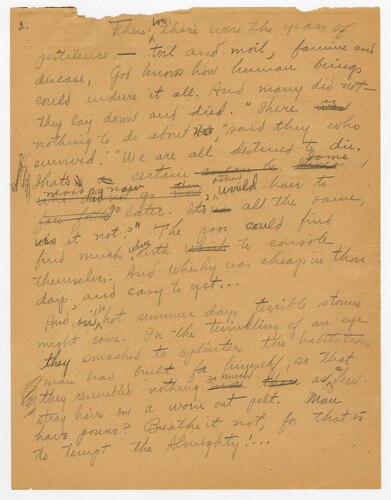 2.
Then, too, there were the years of
pestilence — toil and moil, famine and
disease, God knows how human beings
could endure it all. And many did not —
they lay down and died. "There is
nothing to do about it," said they who
survived. "We are all destined to die.
That's certain. Some
must go now, others would have to
go later. It's all the same,
is it not?" The poor could find
find much where with to console
themselves. And whisky was cheap in those
days, and easy to get...
And on the hot summer days terrible storms
might come. In the twinkling of an eye
they smashed to splinters the habitations
man had built for himself, so that
they resembled nothing so much as a few
stray hairs on a worn out pelt. Man
have power? Breathe it not, for that is
to tempt the Almighty!...